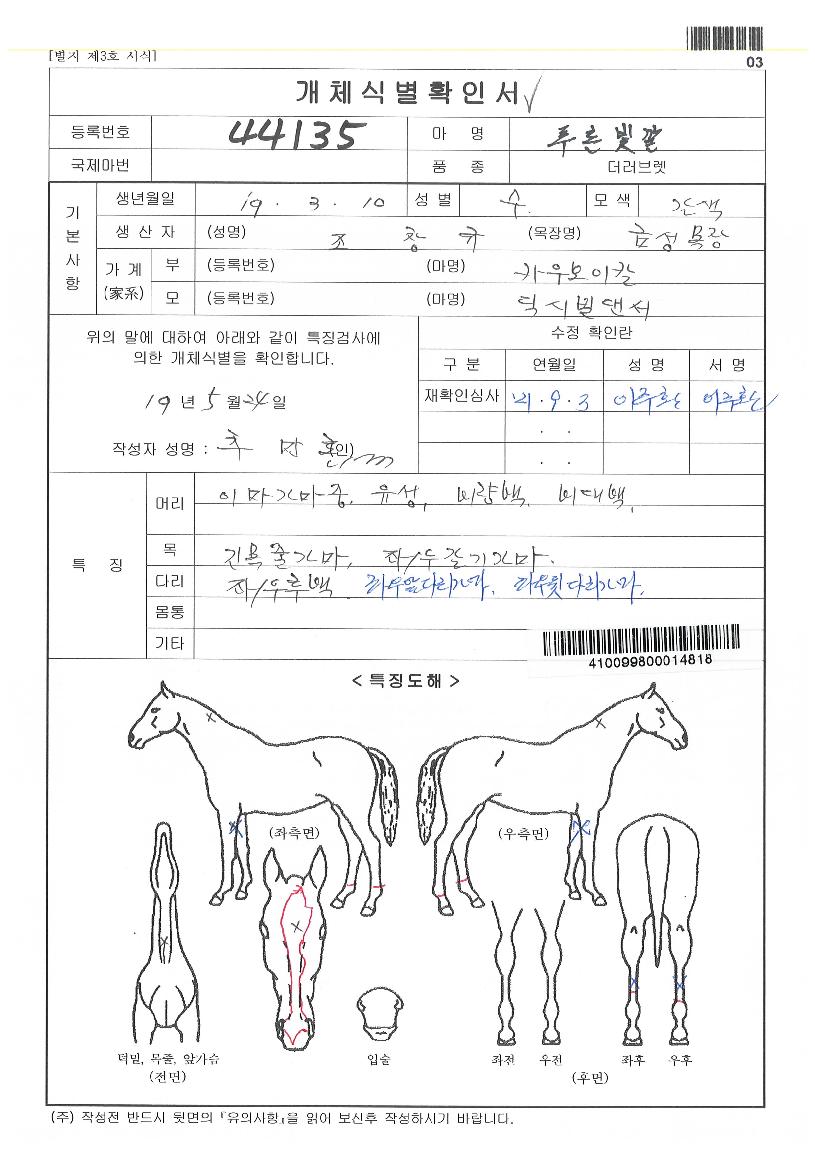 [별지 제3호 서식]
03
개체식별확인서
등록번호 44135 마 명 푸른빛깔
국제마번 품 종 더러브렛
기본사항
생년월일 19 . 3 . 10 성 별 수 모 색 갈색
생 산 자 (성명) 조 창 규 (목장명) 금성목장
가 계 (家系)
부 (등록번호) (마명) 카우보이칼
모 (등록번호) (마명) 딕시빌댄서
위의 말에 대하여 아래와 같이 특징검사에
의한 개체식별을 확인합니다.
19 년 5 월 24 일
작성자 성명 : (인)
수정 확인란
구 분 연월일 성 명 서 명
재확인심사 21 . 9 . 3
. .
. .
특 징
머리 이마가마중, 유성, 비량백, 비대백,
목 긴목줄가마, 좌/우갈기가마.
다리 좌/우후백 좌우앞다리가마, 좌우뒷다리가마.
몸통
기타
410099800014818
< 특징도해 >
(좌측면)
(우측면)
턱밑, 목줄, 앞가슴
(전면)
입술
좌전 우전 좌후 우후
(후면)
(주) 작성전 반드시 뒷면의 『유의사항』을 읽어 보신후 작성하시기 바랍니다.